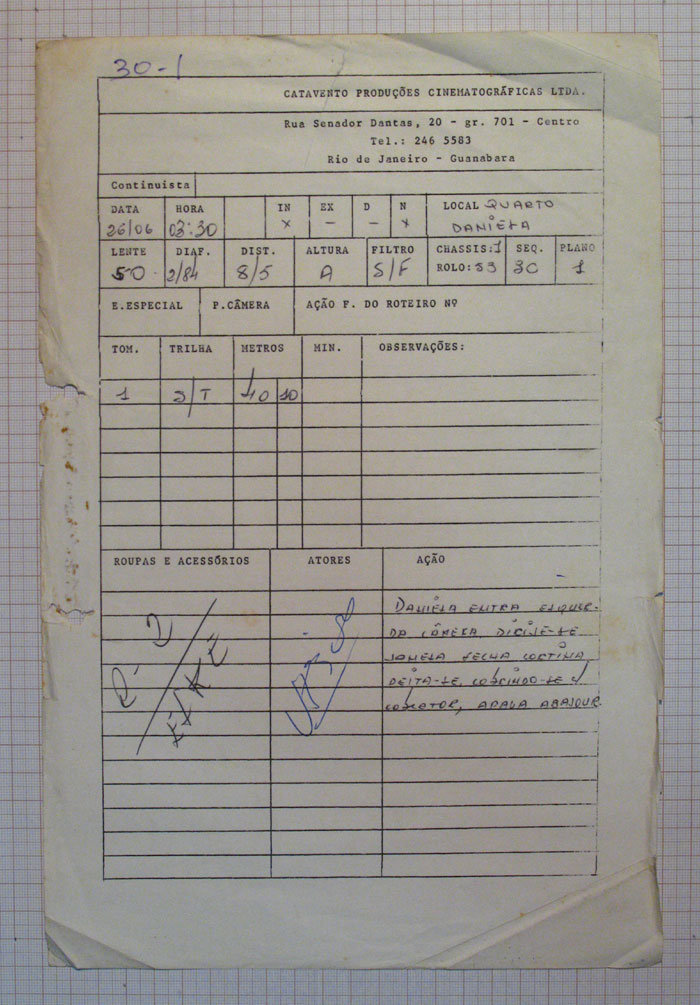 30-1
CATAVENTO PRODUÇÕES CINEMATOGRÁFICAS LTDA.
Rua Senador Dantas, 20 - gr. 701 - Centro
Tel.: 246 5583
Rio de Janeiro - Guanabara
Continuista
DATA HORA IN EX D N LOCAL QUARTO
26/06 03:30 x - - x DANIELA
LENTE DIAF. DIST. ALTURA FILTRO CHASSIS:1 SEQ. PLANO
50 2/84 8/5 A S/F ROLO:53 30 1
E.ESPECIAL P.CÂMERA AÇÃO F. DO ROTEIRO Nº
TOM. TRILHA METROS MIN. OBSERVAÇÕES:
1 S/T 40 10
ROUPAS E ACESSÓRIOS ATORES AÇÃO
DANIELA ENTRA ESQUER-
DA CÂMERA, DIRIJE-SE
JANELA FECHA CORTINA,
DEITA-SE, COBRINDO-SE C/
COBERTOR, APAGA ABAJOUR.
R-2